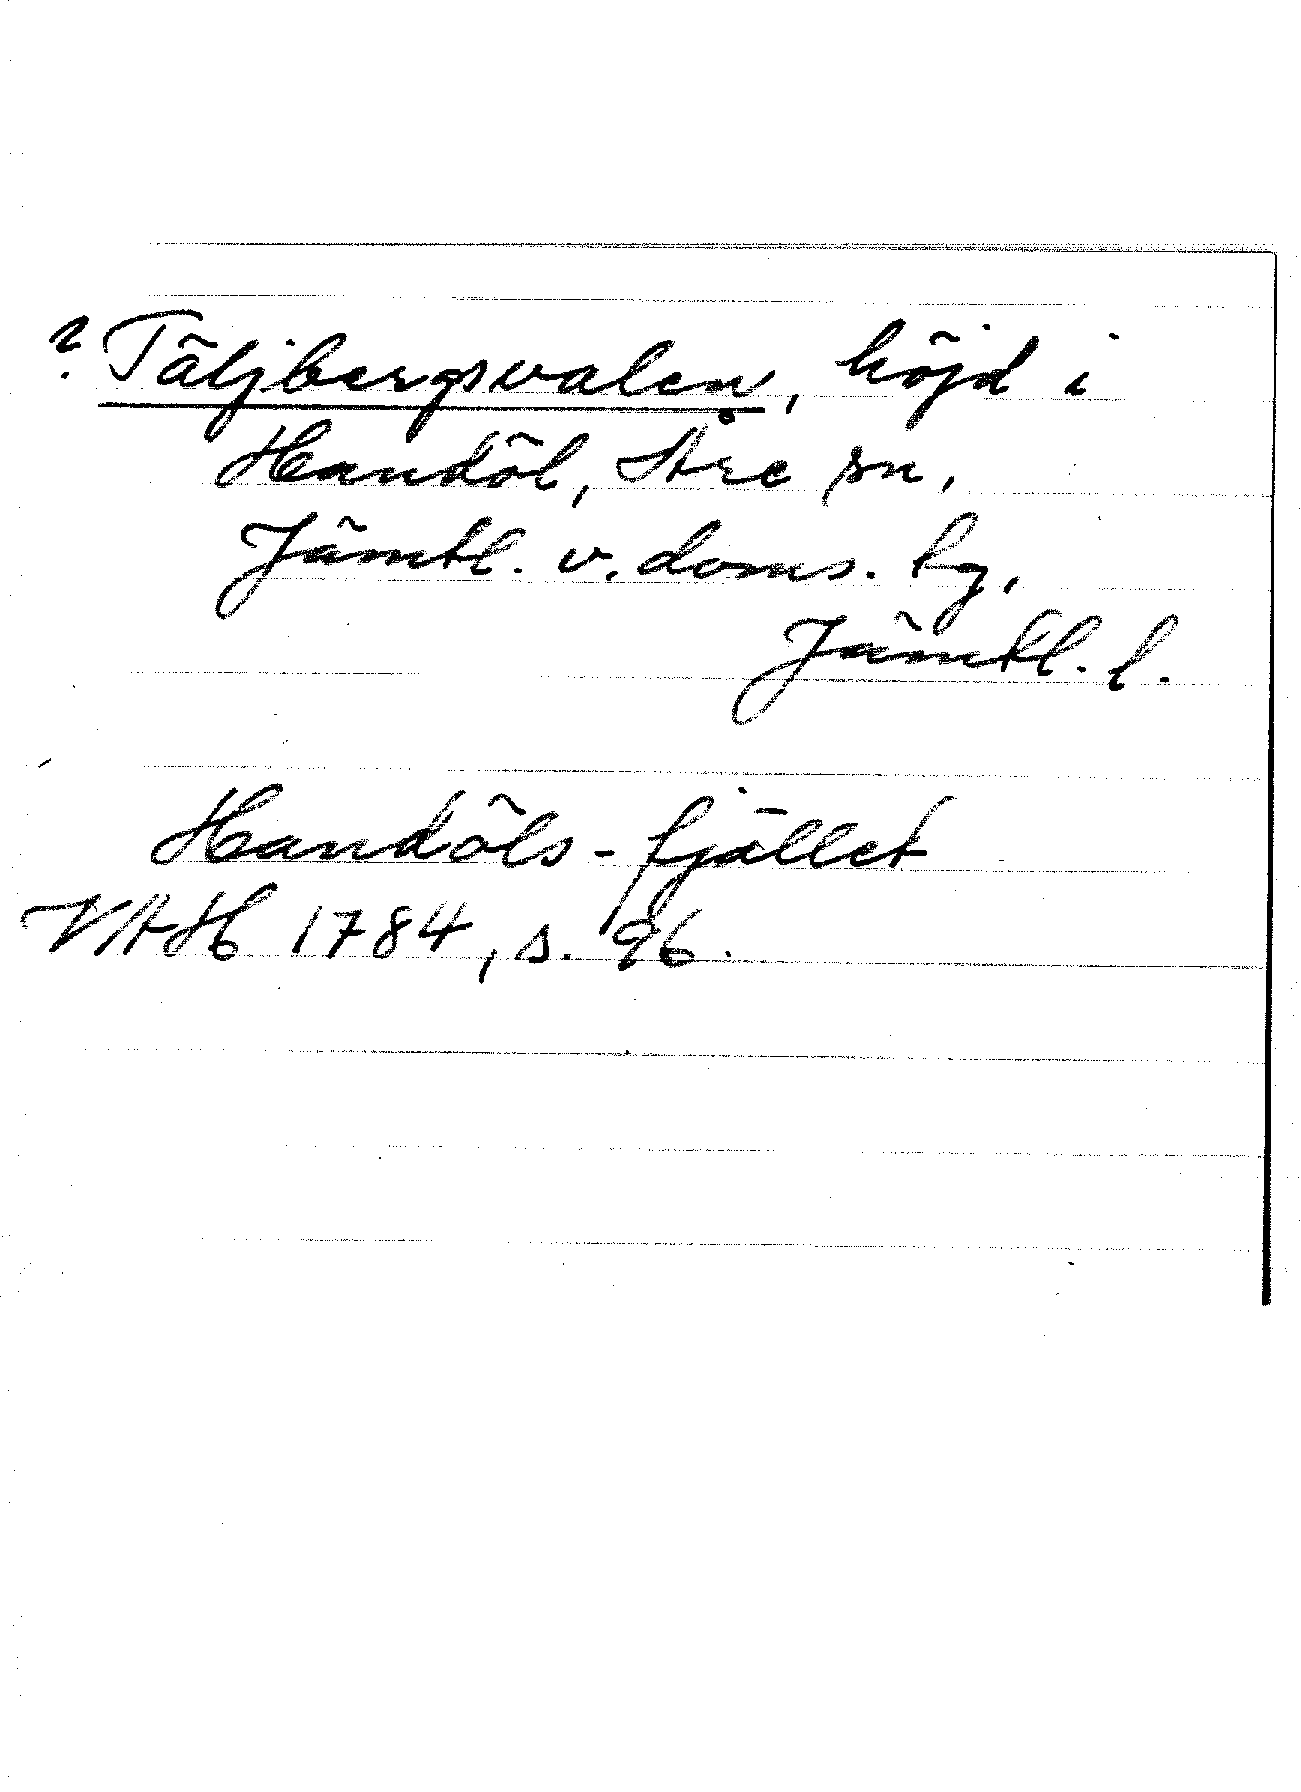 ? Täljbergsvalen, höjd i
Handöl, Åre sn,
Jämtl. v. doms. lg,
Jämtl. l.
Handöls-fjället
VAH 1784, s. 96.